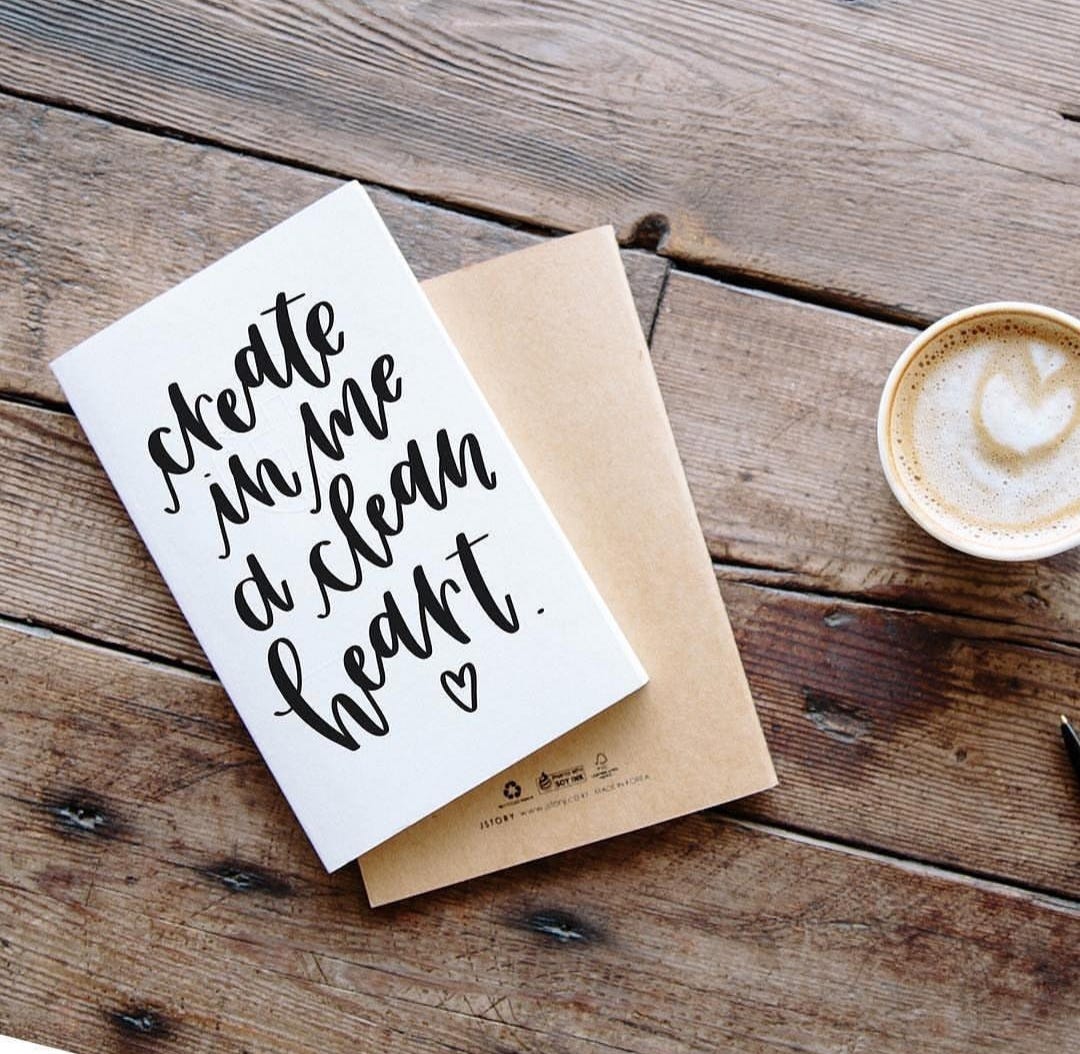 create
in me
a clean
heart.
SOY INK
JSTORY www.jstory.co.kr MADE IN KOREA